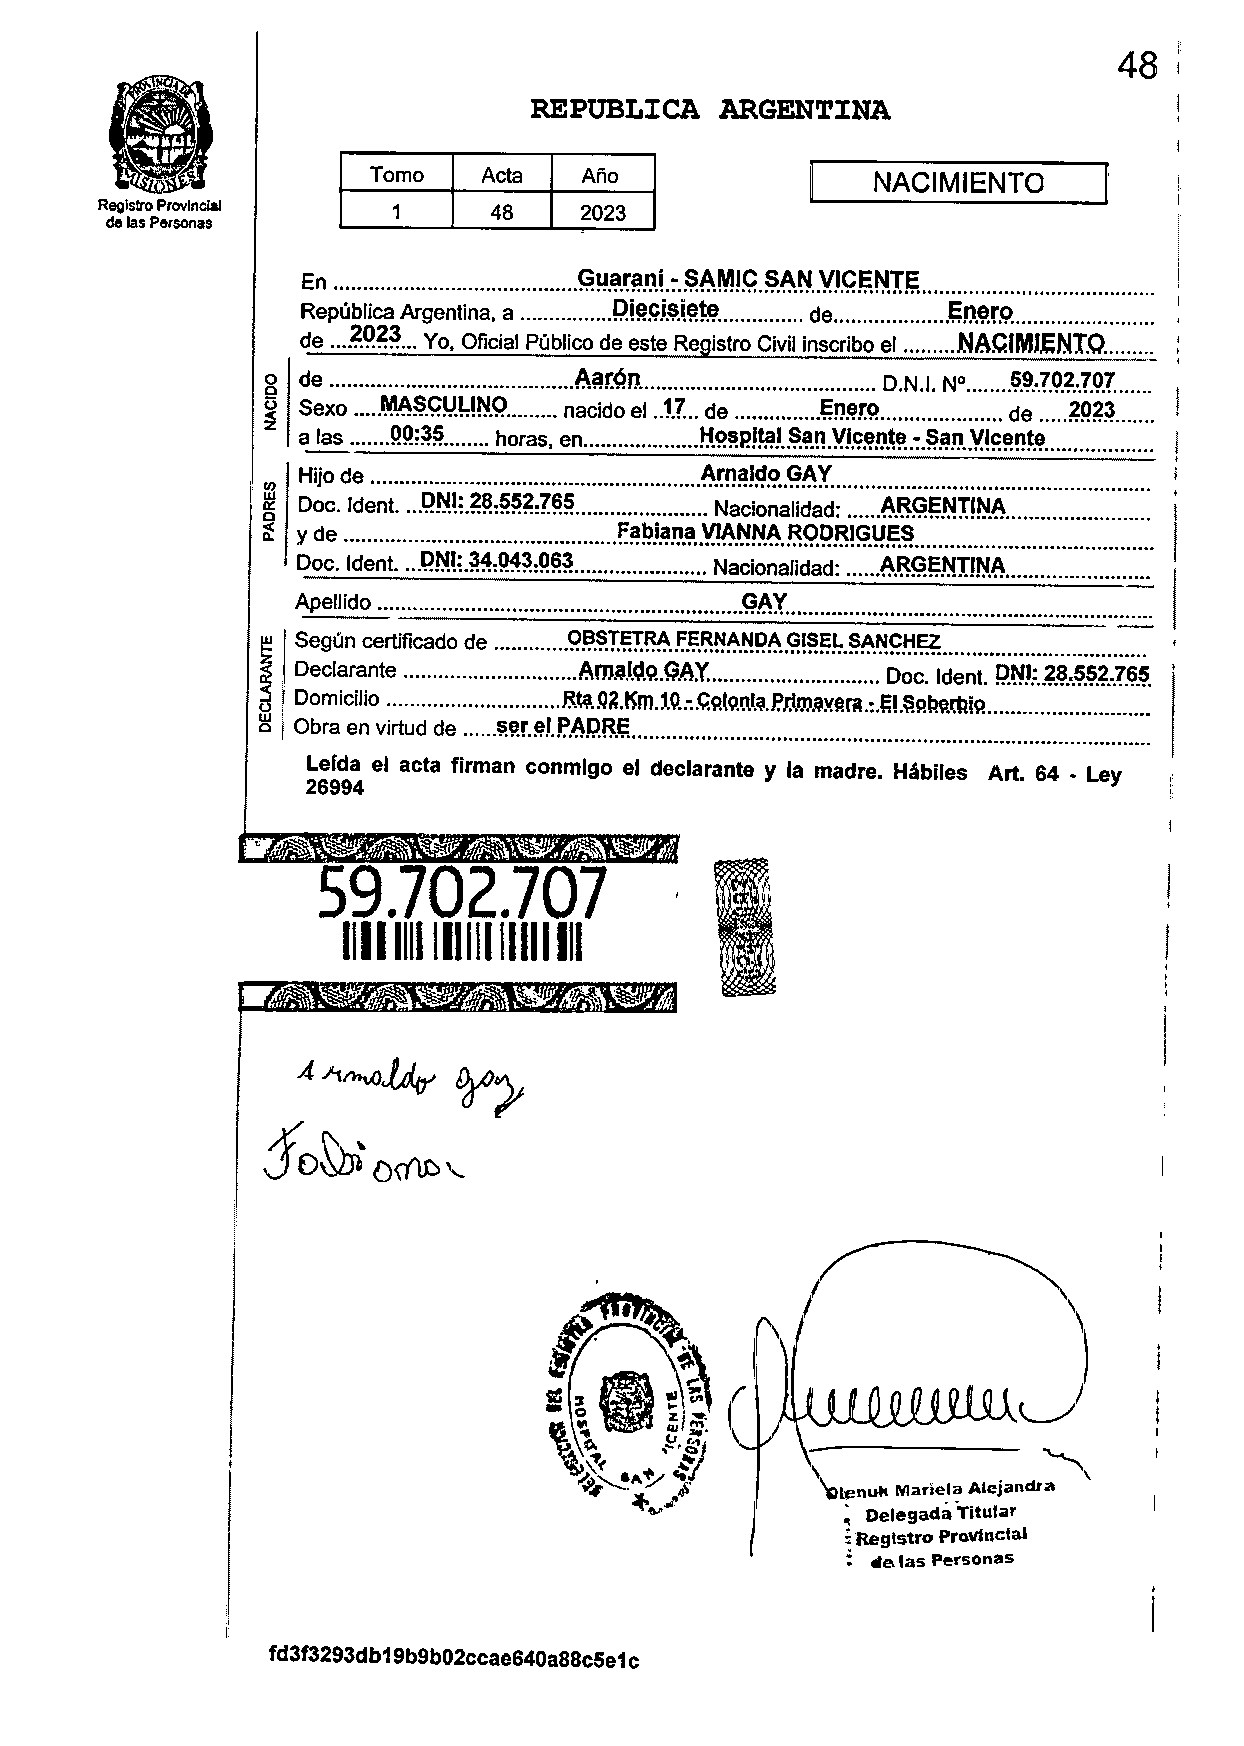 48
PROVINCIA DE
MISIONES
Registro Provincial
de las Personas
REPUBLICA ARGENTINA
Tomo Acta Año
1 48 2023
NACIMIENTO
En Guaraní - SAMIC SAN VICENTE
República Argentina, a Diecisiete de Enero
de 2023 Yo, Oficial Público de este Registro Civil inscribo el NACIMIENTO
NACIDO
de Aarón D.N.I. Nº 59.702.707
Sexo MASCULINO nacido el 17 de Enero de 2023
a las 00:35 horas, en Hospital San Vicente - San Vicente
PADRES
Hijo de Arnaldo GAY
Doc. Ident. DNI: 28.552.765 Nacionalidad: ARGENTINA
y de Fabiana VIANNA RODRIGUES
Doc. Ident. DNI: 34.043.063 Nacionalidad: ARGENTINA
Apellido GAY
DECLARANTE
Según certificado de OBSTETRA FERNANDA GISEL SANCHEZ
Declarante Arnaldo GAY Doc. Ident. DNI: 28.552.765
Domicilio Rta 02 Km 10 - Colonia Primavera - El Soberbio
Obra en virtud de ser el PADRE
Leída el acta firman conmigo el declarante y la madre. Hábiles Art. 64 - Ley
26994
59.702.707
Arnaldo gay
Fabiana
PROVINCIAL DE LAS PERSONAS
HOSPITAL SAN VICENTE
Olenuk Mariela Alejandra
Delegada Titular
Registro Provincial
de las Personas
fd3f3293db19b9b02ccae640a88c5e1c